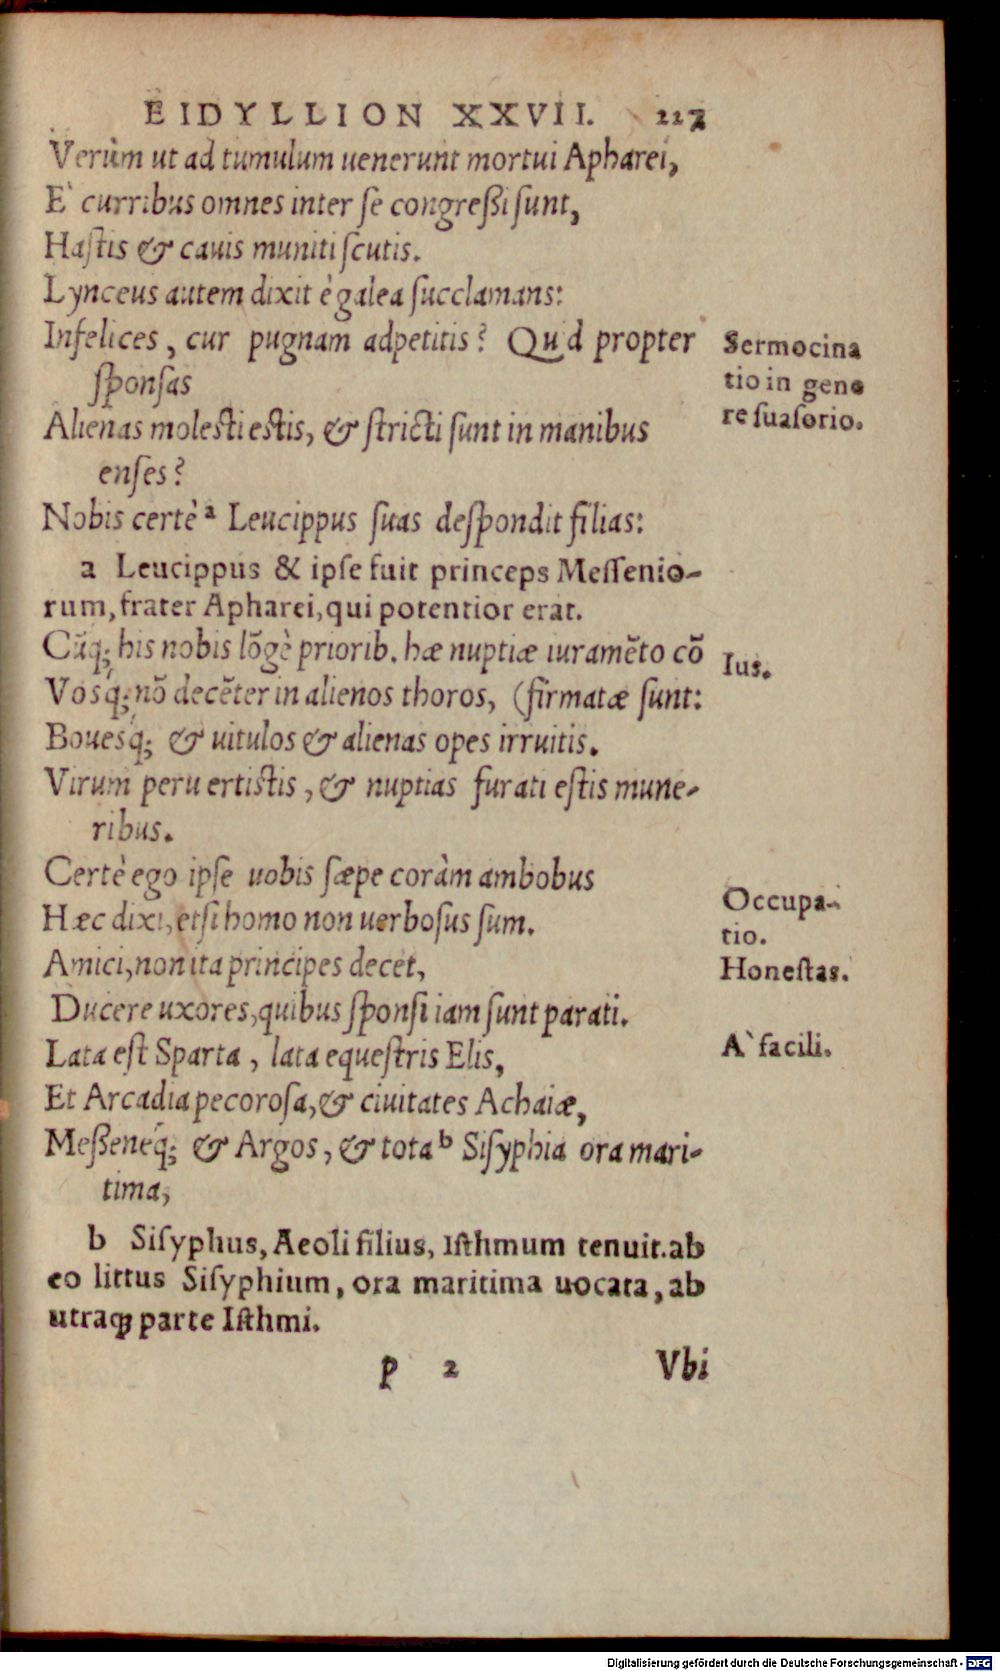 EIDYLLION XXVII. 227
Verùm ut ad tumulum uenerunt mortui Apharei,
E` curribus omnes inter ſe congreßi ſunt,
Haſtis & cauis muniti ſcutis.
Lynceus autem dixit è galea ſucclamans:
Infelices, cur pugnam adpetitis? Quid propter
ſponſas
Sermocina
tio in gene
re ſuaſorio.
Alienas moleſti eſtis, & ſtricti ſunt in manibus
enſes?
Nobis certè a Leucippus ſuas deſpondit filias:
a Leucippus & ipſe fuit princeps Meſſenio-
rum, frater Apharei, qui potentior erat.
Cũq; his nobis lõgè priorib. hæ nuptiæ iuramẽto cõ
Ius.
Vosq; nõ decẽter in alienos thoros, (firmatæ ſunt:
Bouesq; & uitulos & alienas opes irruitis.
Virum peruertiſtis, & nuptias furati eſtis mune-
ribus.
Certè ego ipſe uobis ſæpe coràm ambobus
Hæc dixi, etſi homo non uerboſus ſum.
Occupa-
tio.
Amici, non ita principes decet,
Honeſtas.
Ducere uxores, quibus ſponſi iam ſunt parati.
Lata eſt Sparta, lata equeſtris Elis,
A` facili.
Et Arcadia pecoroſa, & ciuitates Achaiæ,
Meßeneq; & Argos, & tota b Siſyphia ora mari-
tima,
b Siſyphus, Aeoli filius, Iſthmum tenuit. ab
eo littus Siſyphium, ora maritima uocata, ab
utraq; parte Iſthmi.
p 2 Vbi
Digitalisierung gefördert durch die Deutsche Forschungsgemeinschaft - DFG